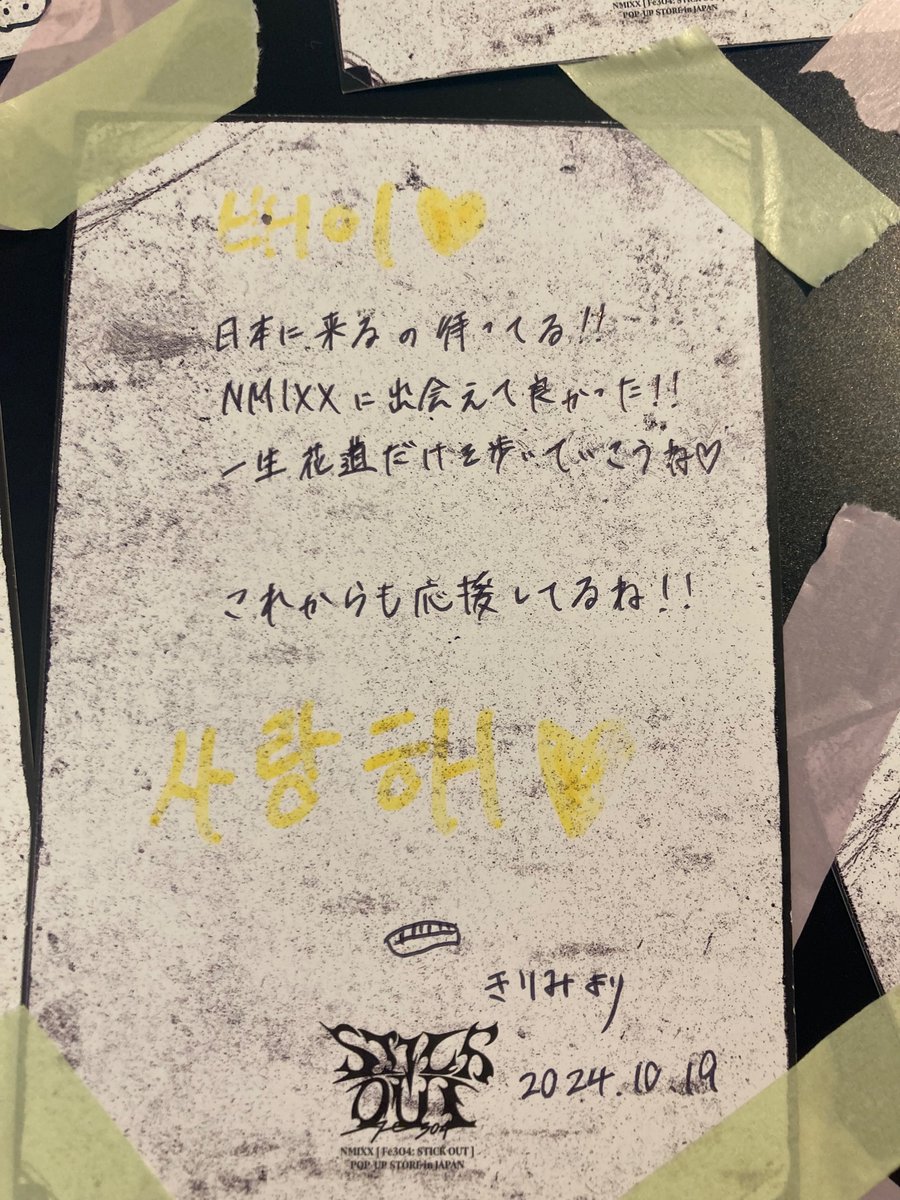 NMIXX [ Fe3O4: STICK OUT ]
POP-UP STORE in JAPAN
배이♡
日本に来るの待ってる!!
NMIXXに出会えて良かった!!
一生花道だけを歩いていこうね♡
これからも応援してるね!!
사랑해♡
きりみより
2024.10.19
STICK
OUT
Fe3O4
NMIXX [ Fe3O4: STICK OUT ]
POP-UP STORE in JAPAN